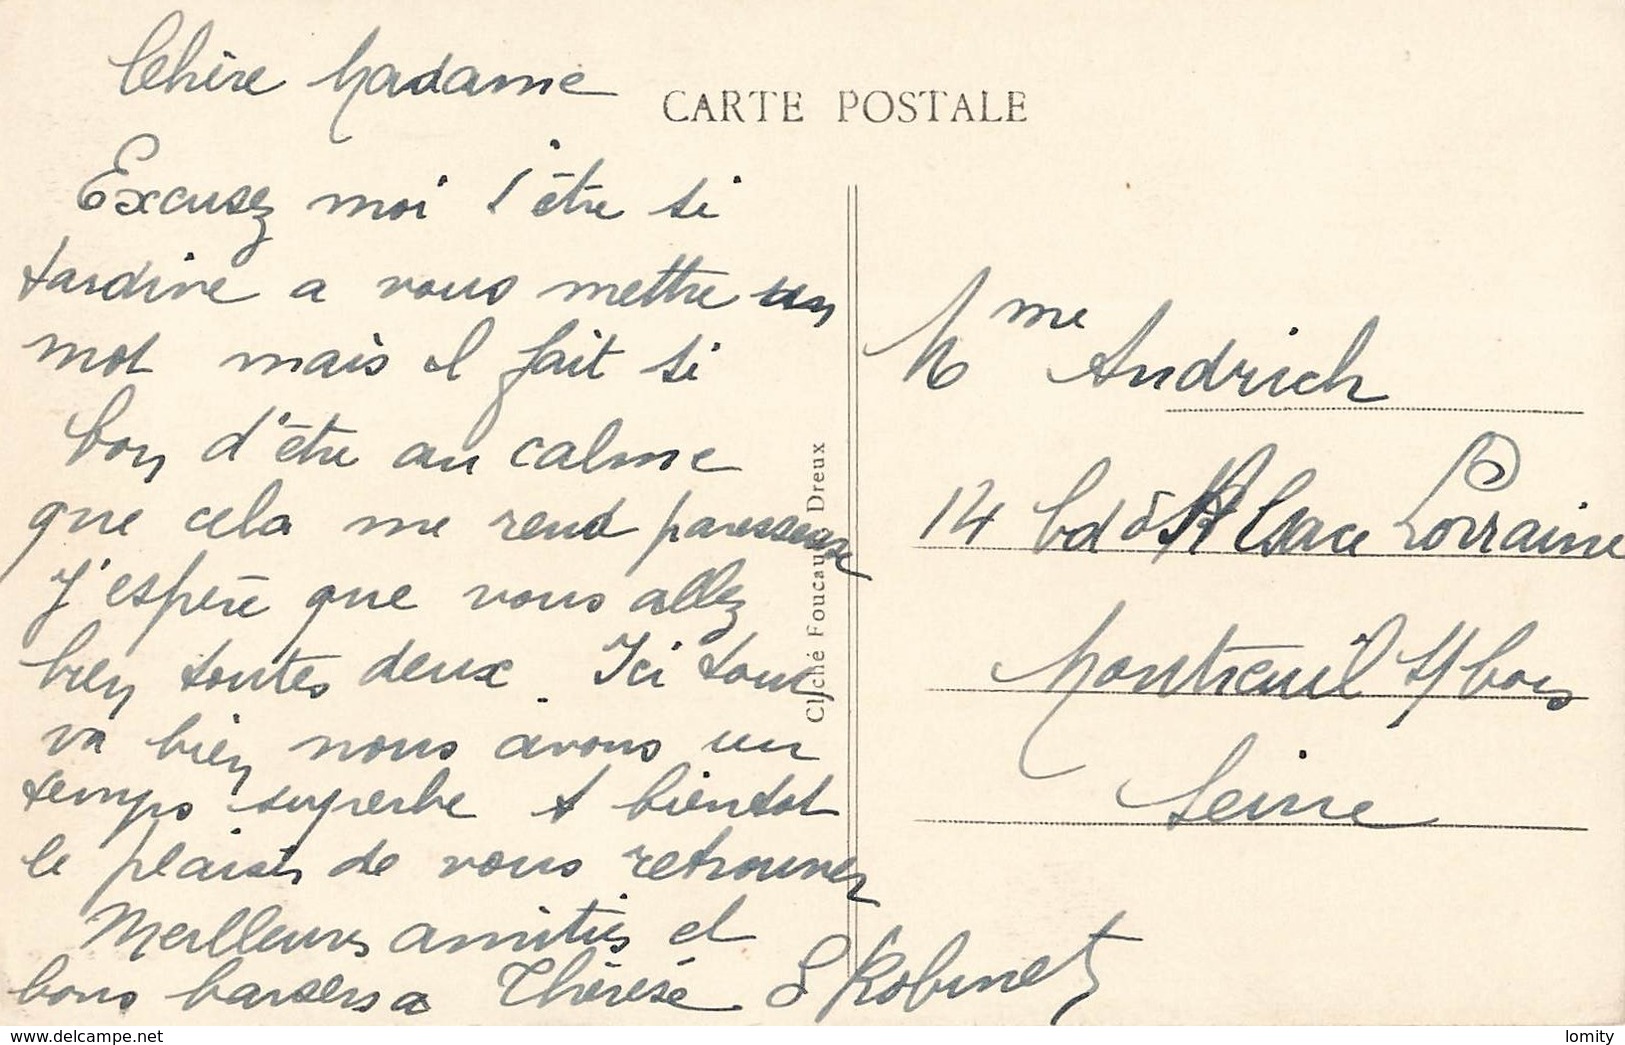 Chère Madame
CARTE POSTALE
Excusez moi d'être si
tardive a vous mettre un
mot mais il fait si
bon d'être au calme
que cela me rend paresseuse
J'espère que vous allez
bien toutes deux. Ici tout
va bien nous avons un
temps superbe A bientot
le plaisir de vous retrouver
Meilleures amitiés et
bons baisers a Thérèse S Robinet
Cliché Foucault, Dreux
Mme Andrich
14 bd d'Alsace Lorraine
Montreuil s/ bois
Seine
www.delcampe.net
lomity